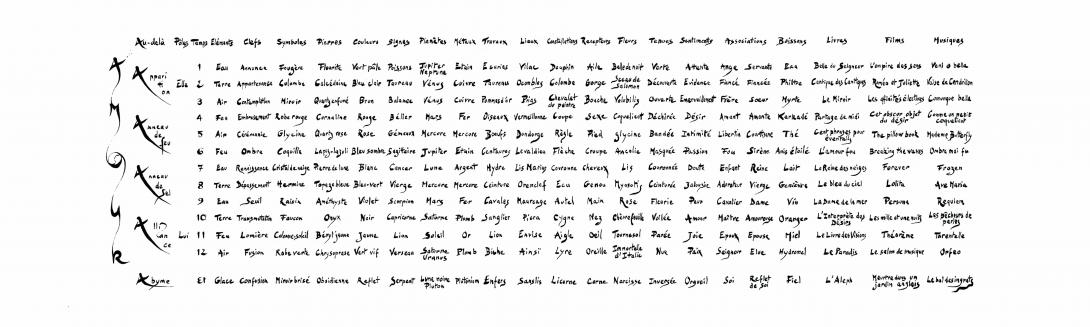 Au-delà Pôles Temps Eléments Clefs Symboles Pierres Couleurs Signes Planètes Métaux Travaux Lieux Constellations Recepteurs Fleurs Tenues Sentiments Associations Boissons Livres Films Musiques
Apparition
1 Eau Annonce Fougère Fluorite Vert pâle Poissons Jupiter Neptune Etain Ecuries Vilac Dauphin Aile Belledenuit Verte Attente Ange Servante Eau Baie du Seigneur L'empire des sens Veni o bella
Elle 2 Terre Appartenance Colombe Calcédoine Bleu clair Taureau Vénus Cuivre Taureau Dombles Colombe Gorge Sceau de Salomon Découverte Evidence Fiancé Fiancée Philtre Cantique des Cantiques Roméo et Juliette Valse de Cendrillon
3 Air Contemplation Miroir Quartz fumé Brun Balance Vénus Cuivre Pommes d'or Prigs Chevalet du peintre Bouche Volubilis Ouverte Emerveillement Frère Soeur Myrte Le Miroir Les affinités électives Convergo bella
Anneau de Feu
4 Feu Embrasement Robe rouge Cornaline Rouge Bélier Mars Fer Oiseaux Vermillonne Coupe Sexe Coquelicot Déchirée Désir Amant Amante Karkadé Partage de midi Cet obscur objet du désir Comme un petit coquelicot
5 Air Cérémonie Glycine Quartz rose Rose Gémeaux Mercure Mercure Boeufs Bondorge Règle Pied Glycine Bandée Intimité Libertin Courtisane Thé Cent phrases pour éventails The pillow book Madame Butterfly
6 Feu Ombre Coquille Lapis-lazuli Bleu sombre Sagittaire Jupiter Etain Centaures Levaldieu Flèche Croupe Ancolie Masquée Passion Fou Sirène Anis étoilé L'amour fou Breaking the waves Ombra mai fu
Anneau de Sel
7 Eau Renaissance Cristal de neige Pierre de lune Blanc Cancer Lune Argent Hydre Lis Marly Couronne Cheveux Lis Couronnée Doute Enfant Reine Lait La Reine des neiges Forever Frozen
8 Terre Dépassement Hermine Topaze bleue Bleu-vert Vierge Mercure Mercure Ceinture Orenclef Ecu Genou Myosotis Ceinturée Jalousie Adorateur Vierge Genièvre Le bleu du ciel Lolita Ave Maria
9 Eau Seuil Raisin Améthyste Violet Scorpion Mars Fer Cavales Mauregge Autel Main Rose Fleurie Peur Cavalier Dame Vin La Dame de la mer Persona Requiem
Alliance
10 Terre Transmutation Faucon Onyx Noir Capricorne Saturne Plomb Sanglier Piera Cygne Nez Chèvrefeuille Voilée Amour Maître Amoureuse Oranger L'Interprète des Désirs Les mille et une nuits Les pêcheurs de perles
Lui 11 Feu Lumière Colonne soleil Béryl jaune Jaune Lion Soleil Or Lion Envise Aigle Oeil Tournesol Parée Joie Epoux Epouse Miel Le Livre des Visions Théorème Tarentule
12 Air Fusion Robe verte Chrysoprase Vert vif Verseau Saturne Uranus Plomb Biche Ainsi Lyre Oreille Immortelle d'Italie Nue Paix Seigneur Elue Hydromel Le Paradis Le salon de musique Orfeo
Abyme Et Glace Confusion Miroir brisé Obsidienne Reflet Serpent Lune noire Pluton Platinium Enfers Sanslis Licorne Corne Narcisse Inversée Orgueil Soi Reflet de Soi Fiel L'Aleph Meurtre dans un jardin anglais Le bal des ingrats